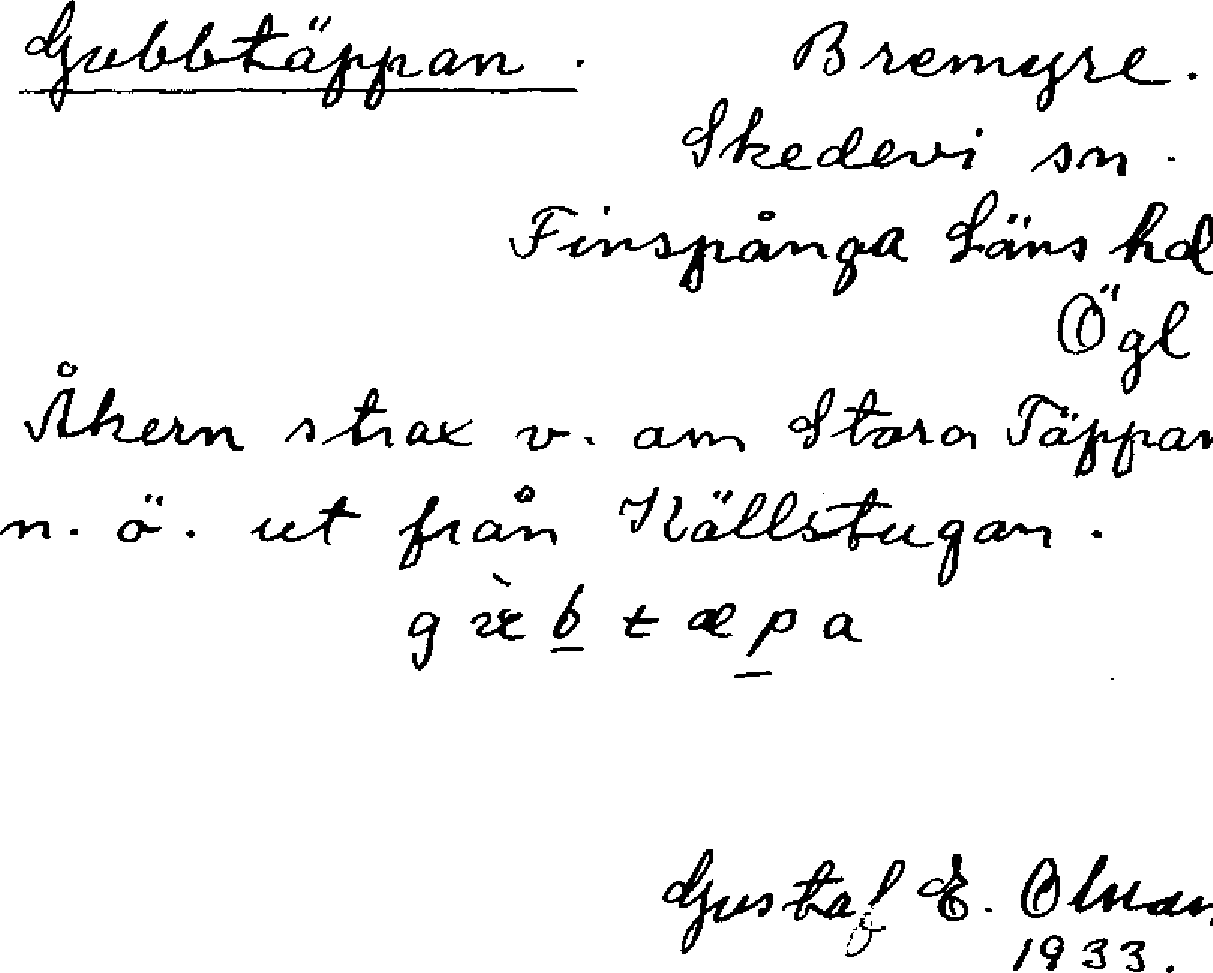 Gubbtäppan. Bremyre.
Skedevi sn.
Finspånga Läns hd
Ögl
Åkern strax v. om Stora Täppan
n. ö. ut från Källstugan.
Gustaf E.
1933.